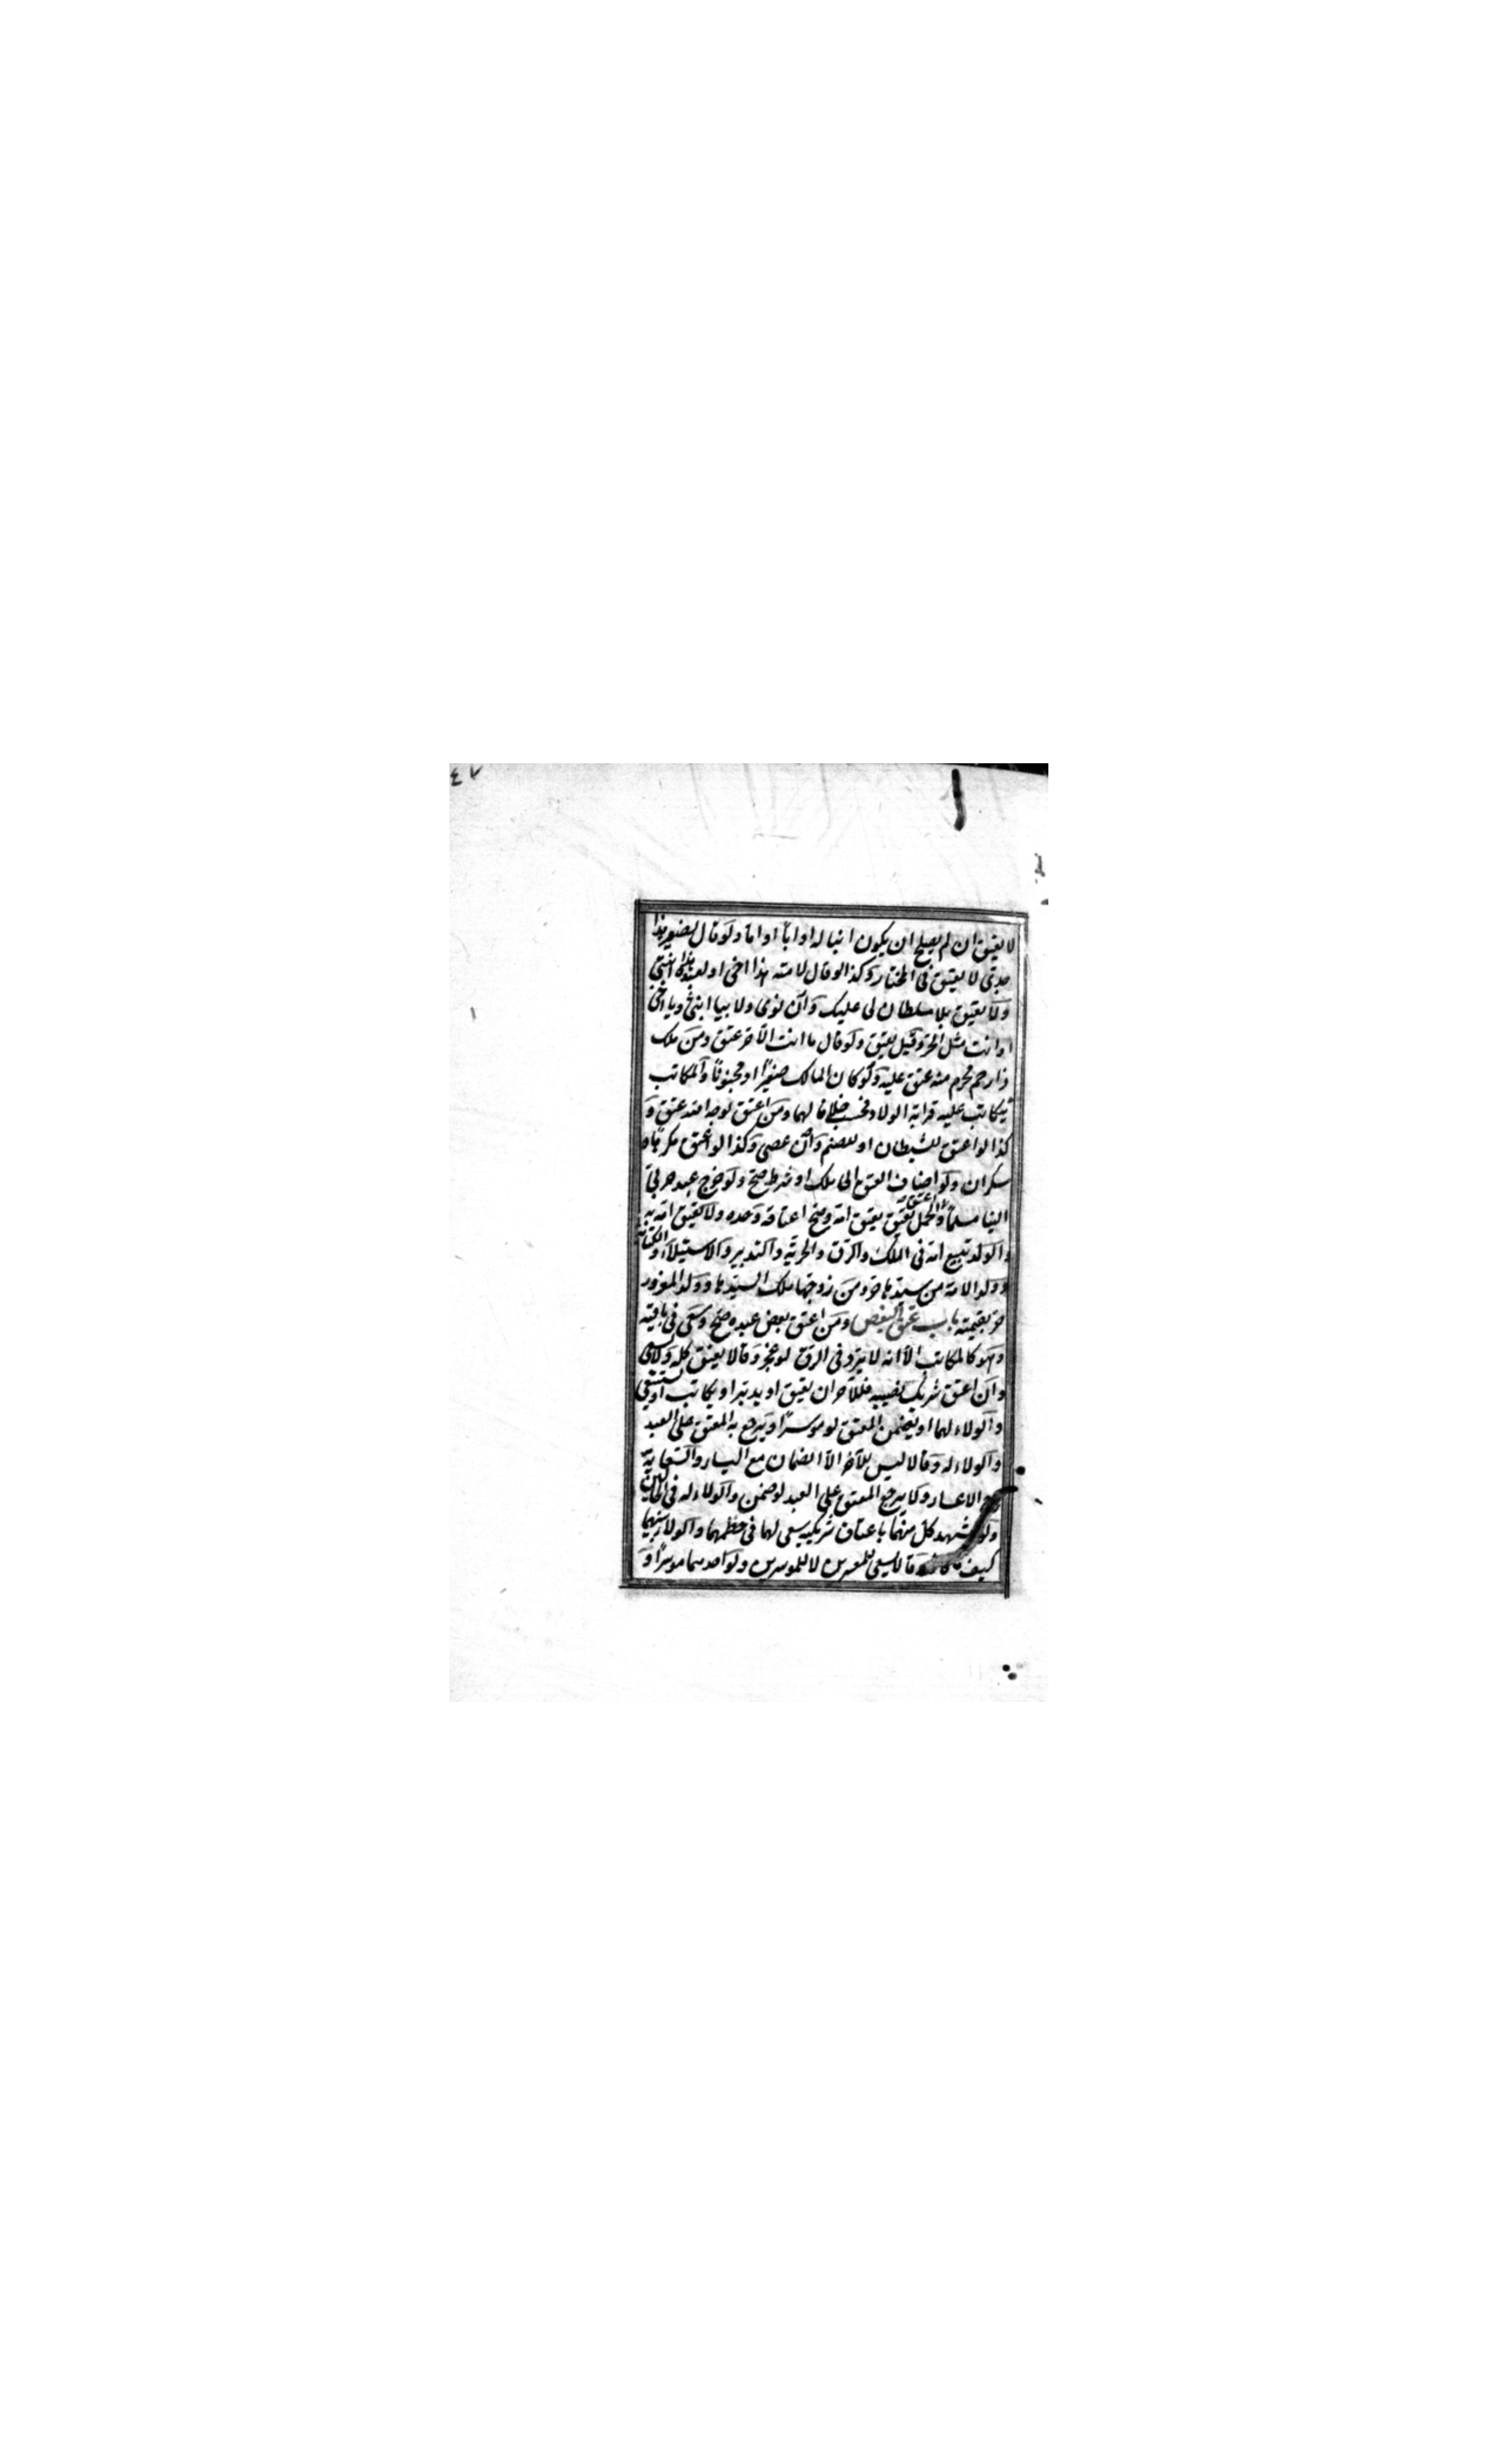 ٤٧
لا يعتق ان لم يصلح ان يكون ابنا له او ابا او اما ولو قال لصغير هذا
جدى لا يعتق فى المختار وكذا لو قال لامته هذا اخى او لعبده هذا بنتى
ولا يعتق بلا سلطان لى عليك وان نوى ولا بيا ابنى ويا اخى
او انت مثل الحر وقيل يعتق ولو قال ما انت الا حر عتق ومن ملك
ذا رحم محرم منه عتق عليه ولو كان المالك صغيرا او مجنونا والمكاتب
يتكاتب عليه قرابة الولاد فحسب خلافا لهما ومن اعتق لوجه الله عتق و
كذا لو اعتق للشيطان او للصنم وان عصى وكذا لو اعتق مكرها او
سكران ولو اضاف العتق الى ملك او شرط صح ولو خرج عبد حربى
الينا مسلما عتق والحمل يعتق بعتق امه وصح اعتاقه وحده ولا تعتق امه به
والولد يتبع امه فى الملك والرق والحرية والتدبير والاستيلاد والكتابة
وولد الامة من سيدها حر ومن زوجها ملك لسيدها وولد المغرور
حر بقيمته باب عتق البعض ومن اعتق بعض عبده صح وسعى فى باقيه
وهو كالمكاتب الا انه لا يرد فى الرق لو عجز وقالا يعتق كله ولا يسعى
وان اعتق شريك نصيبه فللآخر ان يعتق او يدبر او يكاتب او يستسعى
والولاء لهما او يضمن المعتق لو موسرا ويرجع به المعتق على العبد
والولاء له وقالا ليس للآخر الا الضمان مع اليسار والسعاية
مع الاعسار ولا يرجع المعتق على العبد لو ضمن والولاء له فى الحالين
ولو شهد كل منهما باعتاق شريكه سعى لهما فى حظهما والولاء بينهما
كيف ما كانا وقالا يسعى للمعسرين لا للموسرين ولو احدهما موسرا و